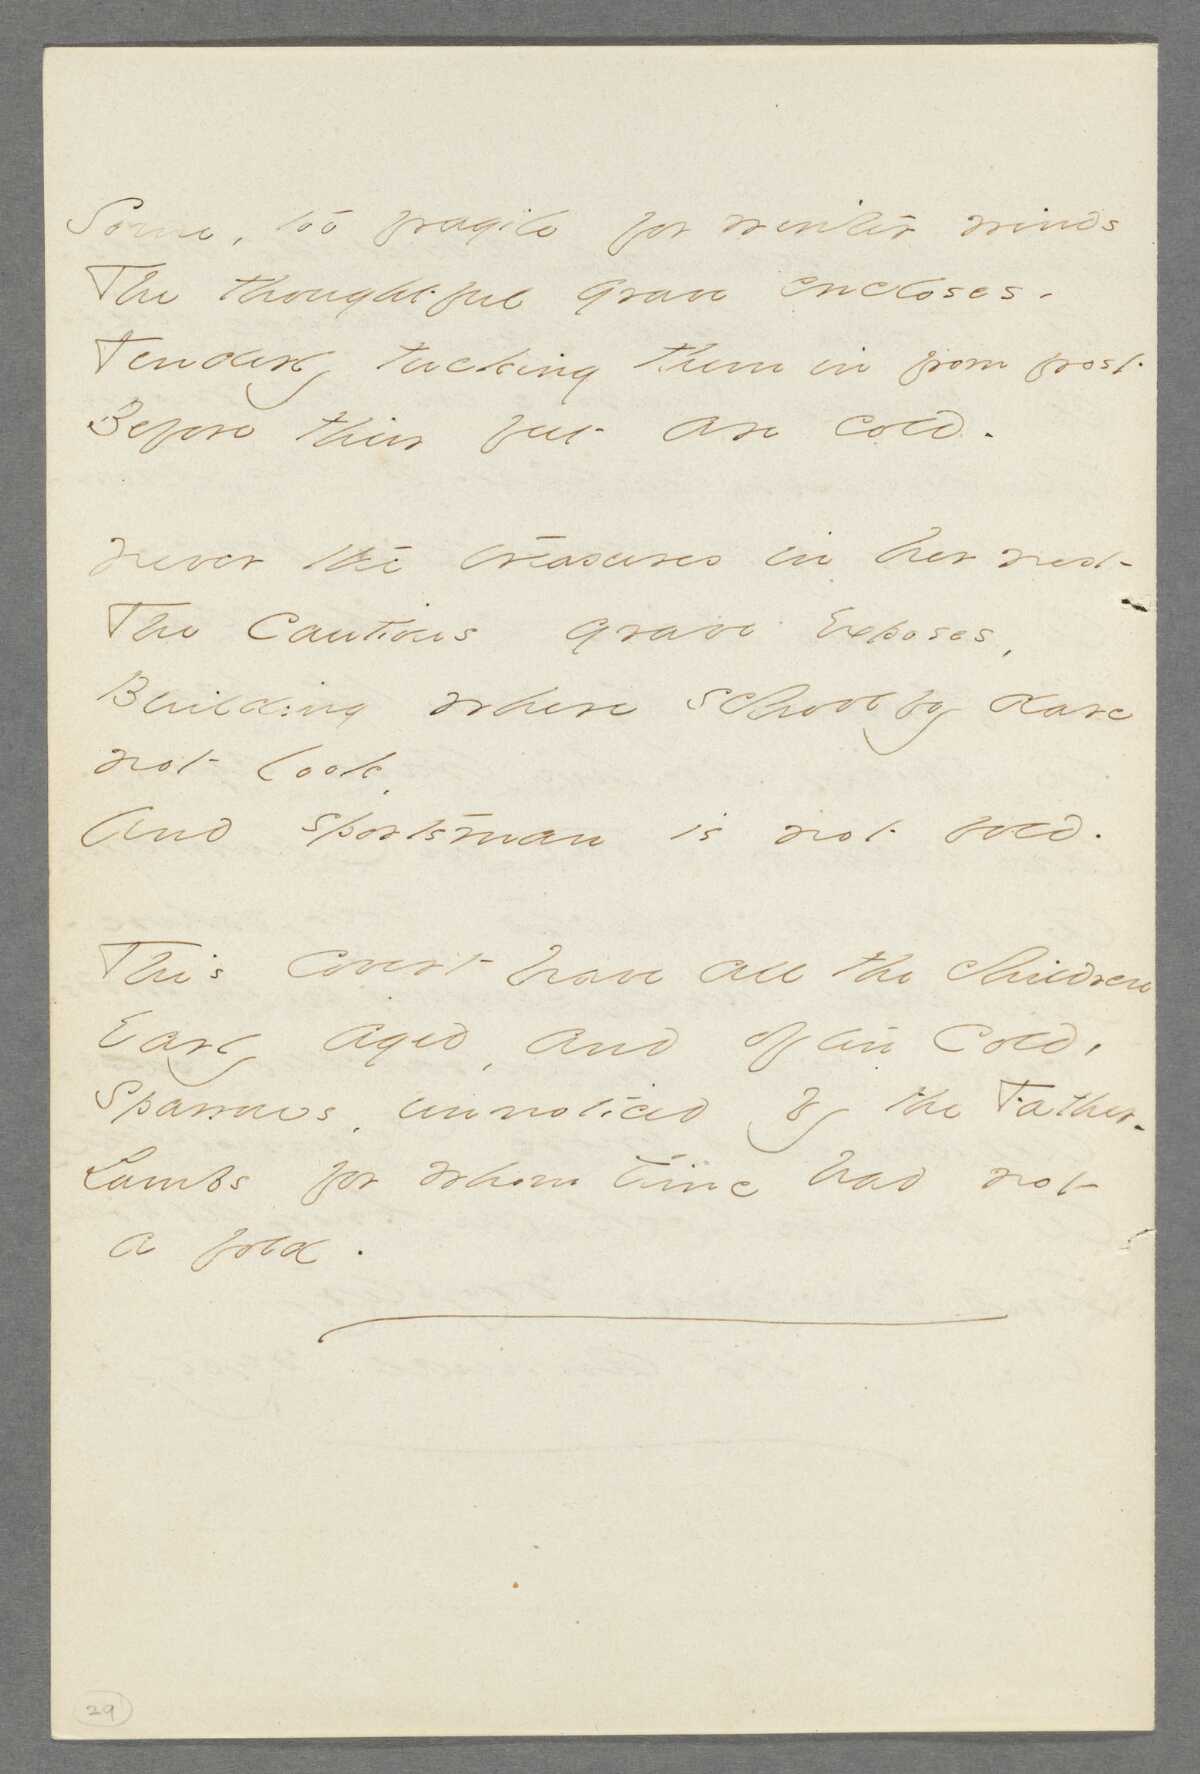 Some, too fragile for winter winds
The thoughtful grave encloses -
Tenderly tucking them in from frost
Before their feet are cold -
never the treasures in her nest
The Cautious grave exposes,
Building where schoolboy dare
not look,
And sportsman is not bold.
This Covert have all the children
Early aged, and often Cold,
Sparrows, unnoticed by the Father -
Lambs for whom time had not
a fold.
29